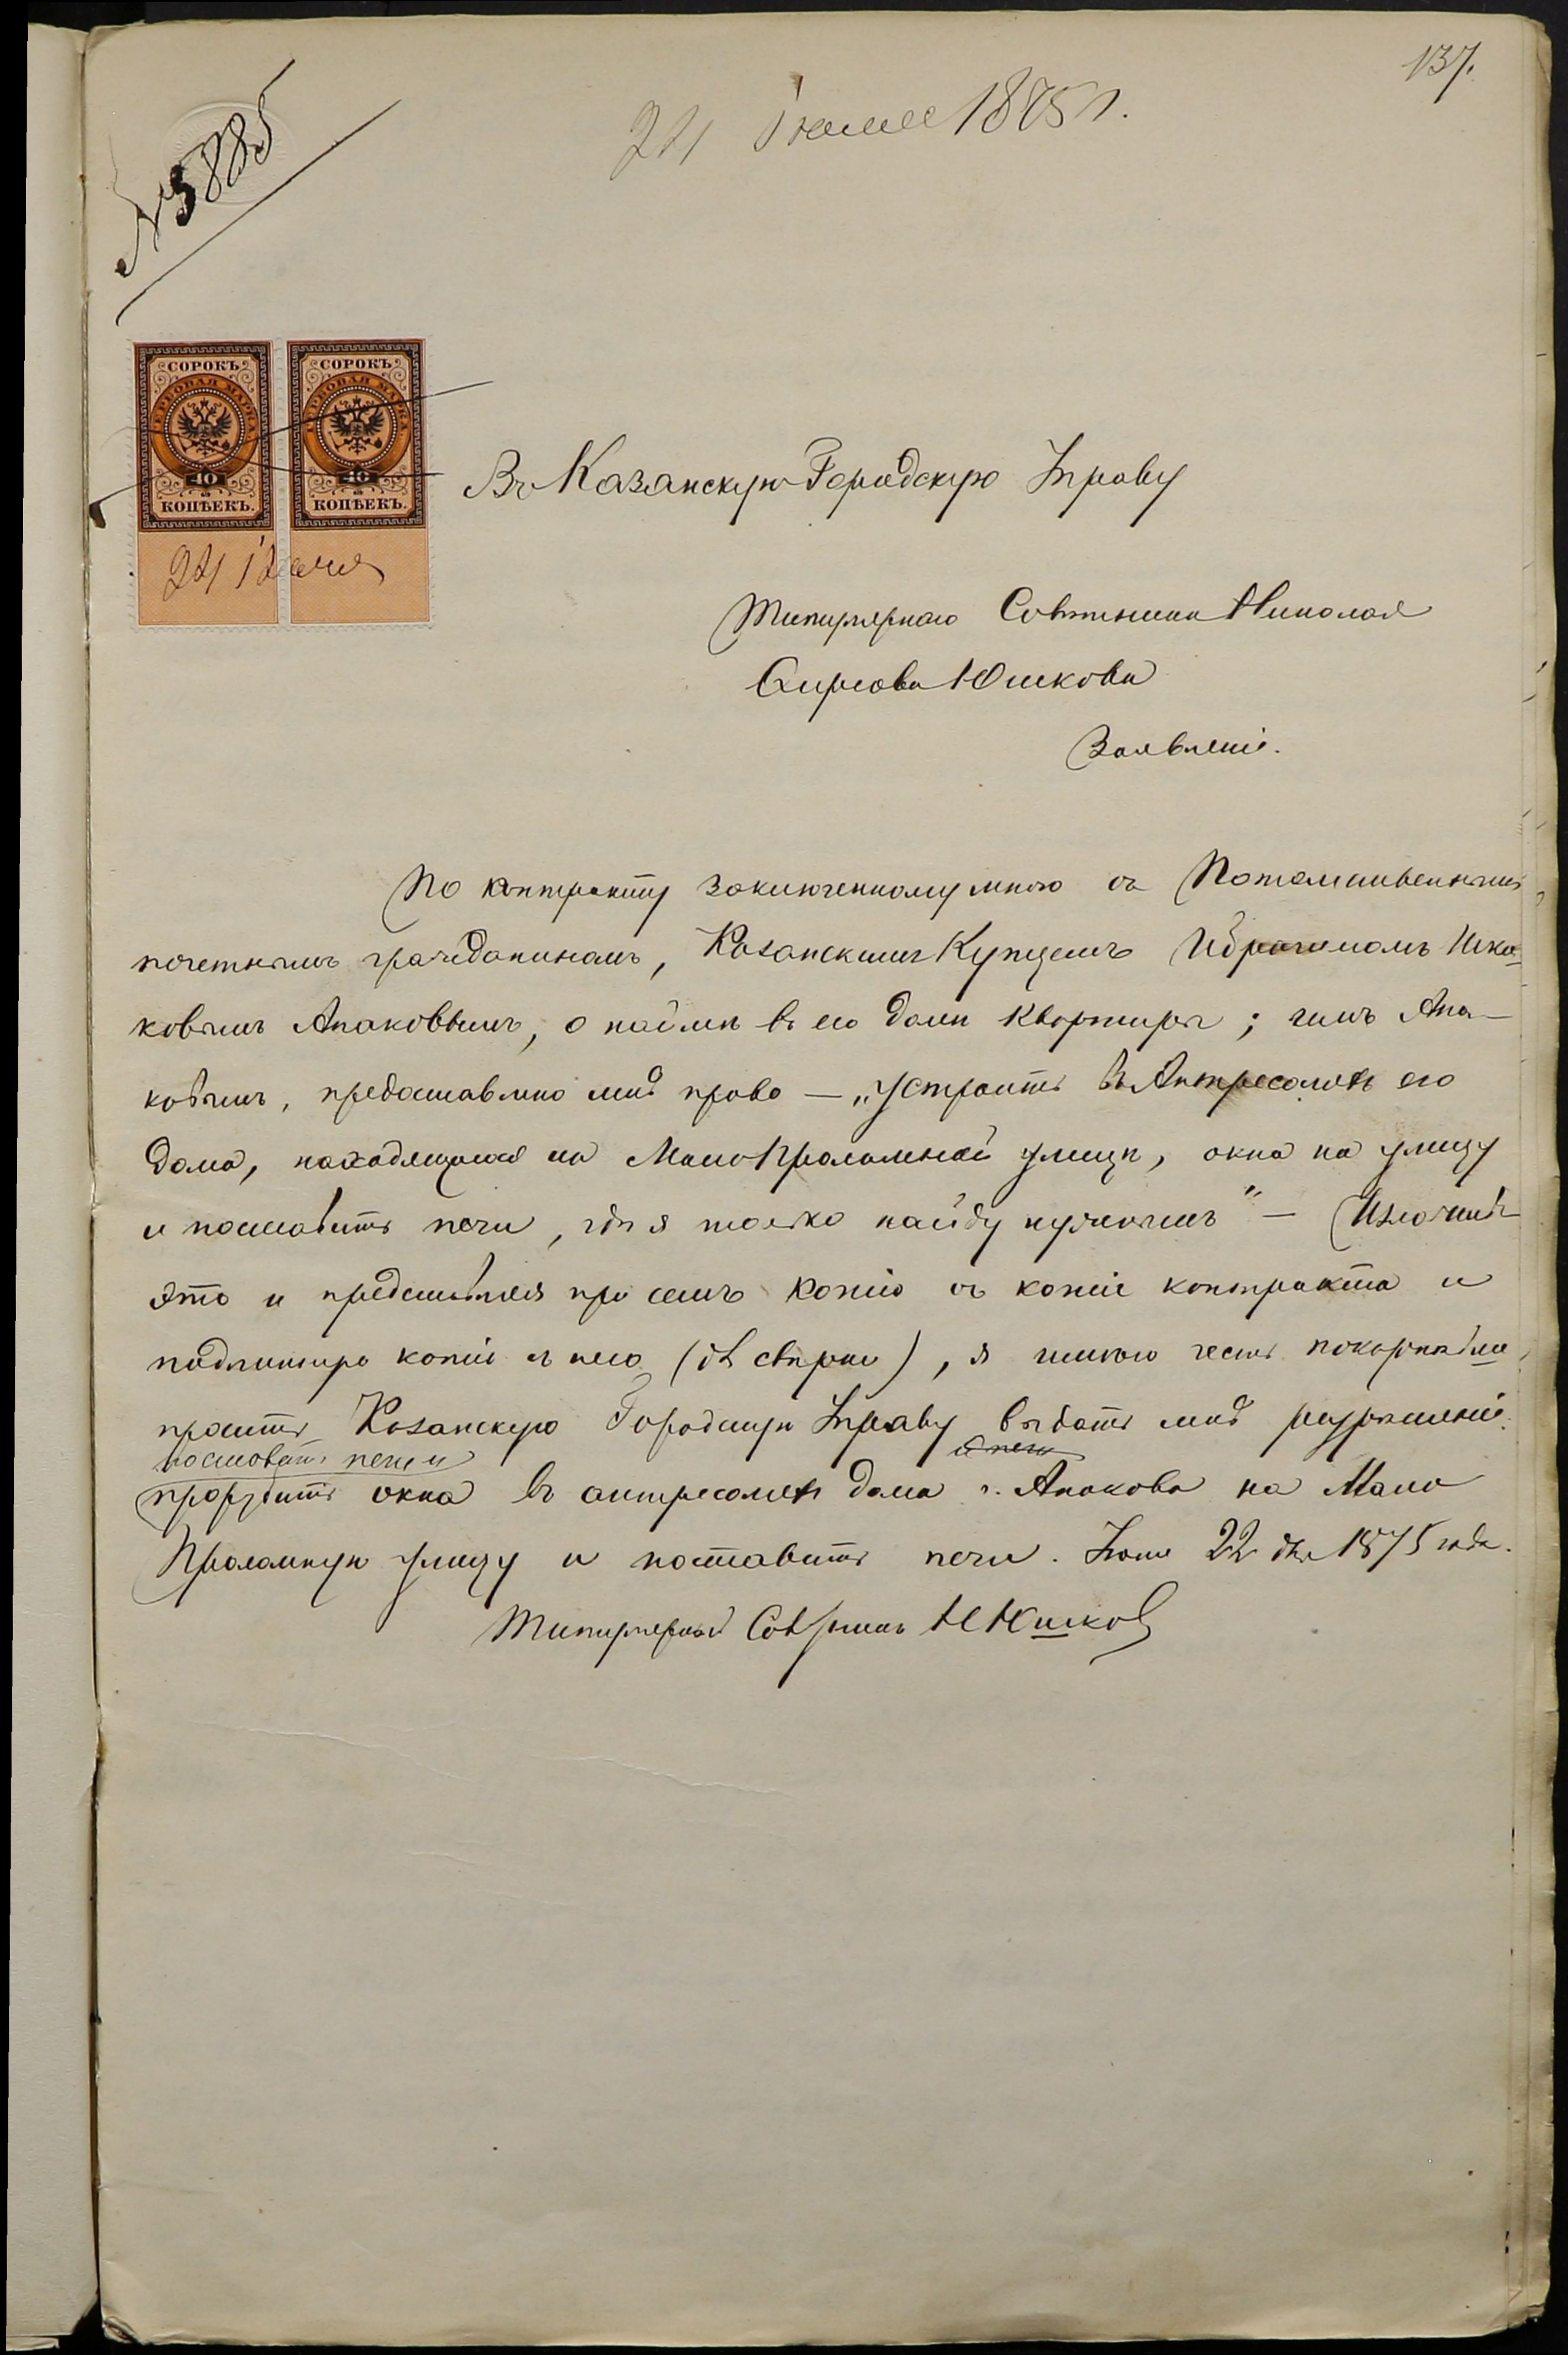 137.
24 Іюня 1875 г.
№ 5885
СОРОКЪ СОРОКЪ
ГЕРБОВАЯ МАРКА ГЕРБОВАЯ МАРКА
40 40
КОПѢЕКЪ. КОПѢЕКЪ.
24 Іюня
Въ Казанскую Городскую Управу
Титулярнаго Совѣтника Николая
Юшкова
Заявленіе.
По контракту заключенному мною съ Потомственнымъ
почетнымъ гражданиномъ, Казанскимъ Купцемъ Ибрагимомъ Исха-
ковымъ Апаковымъ, о наймѣ въ его домѣ квартиры; имъ Апа-
ковымъ, предоставлено мнѣ право — „устроить въ Антресоляхъ его
дома, находящагося на Мало Проломной улицѣ, окна на улицу
и поставить печи, гдѣ я только найду нужнымъ" — Изложивъ
это и представляя при семъ копію съ копіи контракта и
подлинную копію съ него (для свѣрки), я имѣю честь покорнѣйше
просить Казанскую Городскую Управу выдать мнѣ разрѣшеніе
поставить печи и
и печи
прорубить окна въ антресоляхъ дома г. Апакова на Мало
Проломную улицу и поставить печи. Іюня 22 дня 1875 года.
Титулярный Совѣтникъ Н Юшковъ